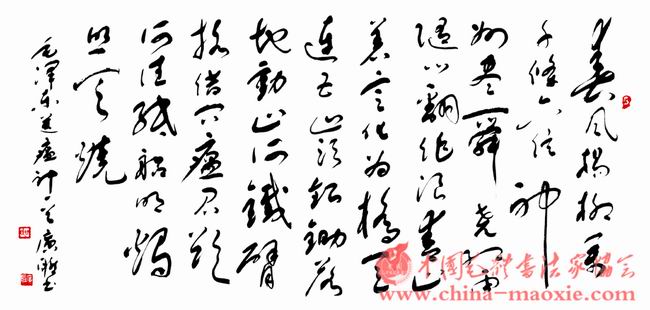 春风杨柳万
千條六億神
州尽舜尧红雨
随心翻作浪青山
着意化为橋天
連五岭银鋤落
地動三河鐵臂
摇借问瘟君欲
何往纸船明燭
照天烧
毛泽东送瘟神一首
中国毛体书法家协会
www.china-maoxie.com